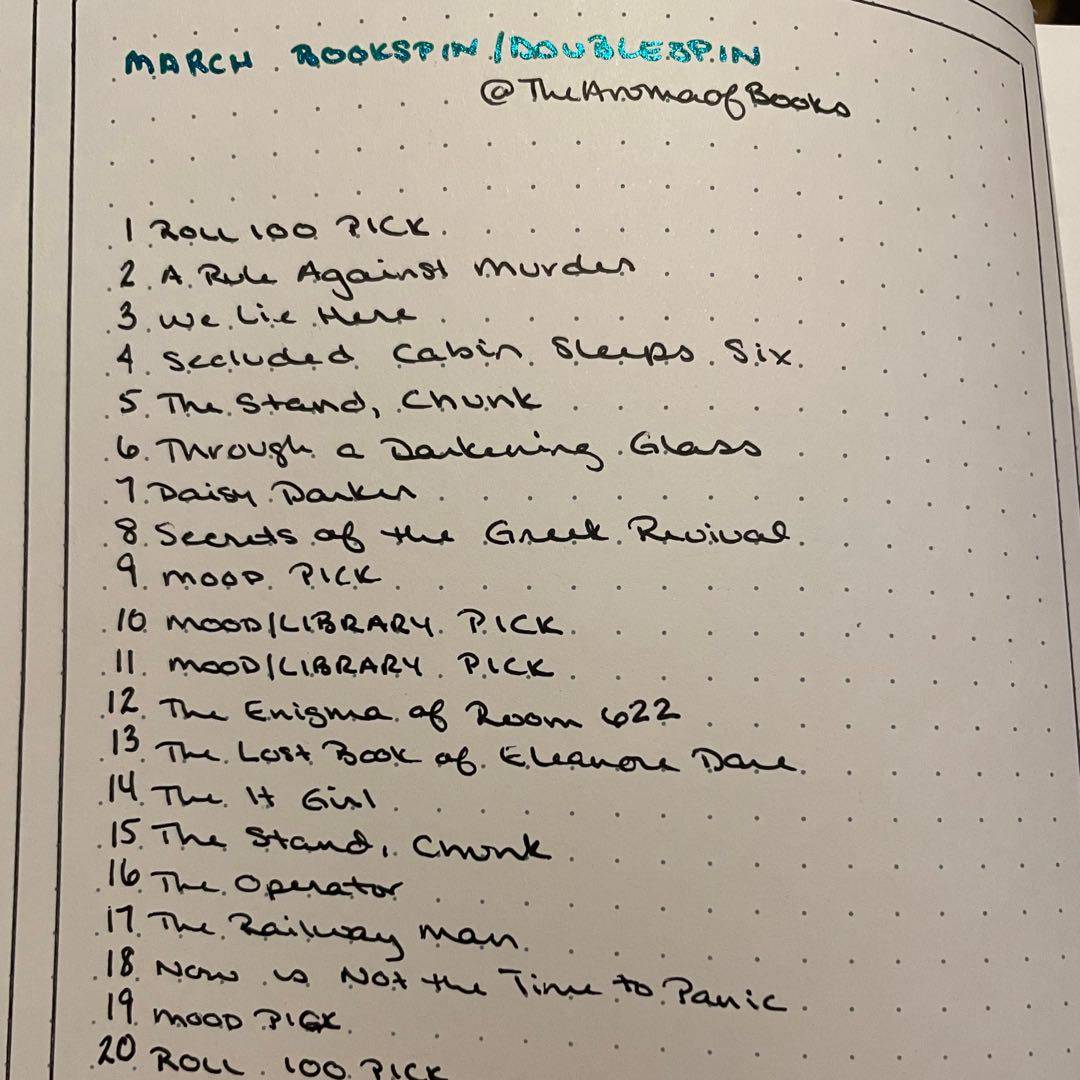 MARCH BOOKSPIN/DOUBLESPIN
@TheAromaofBooks
1 ROLL 100 PICK
2. A Rule Against Murder
3. We Lie Here
4. Secluded Cabin Sleeps Six
5. The Stand, Chunk
6. Through a Darkening Glass
7. Daisy Darker
8. Secrets of the Greek Revival
9. MOOD PICK
10. MOOD/LIBRARY PICK
11. MOOD/LIBRARY PICK
12. The Enigma of Room 622
13. The Lost Book of Eleanore Dare
14. The It Girl
15. The Stand, Chunk
16. The Operator
17. The Railway Man
18. Now is Not the Time to Panic
19. MOOD PICK
20. ROLL 100 PICK